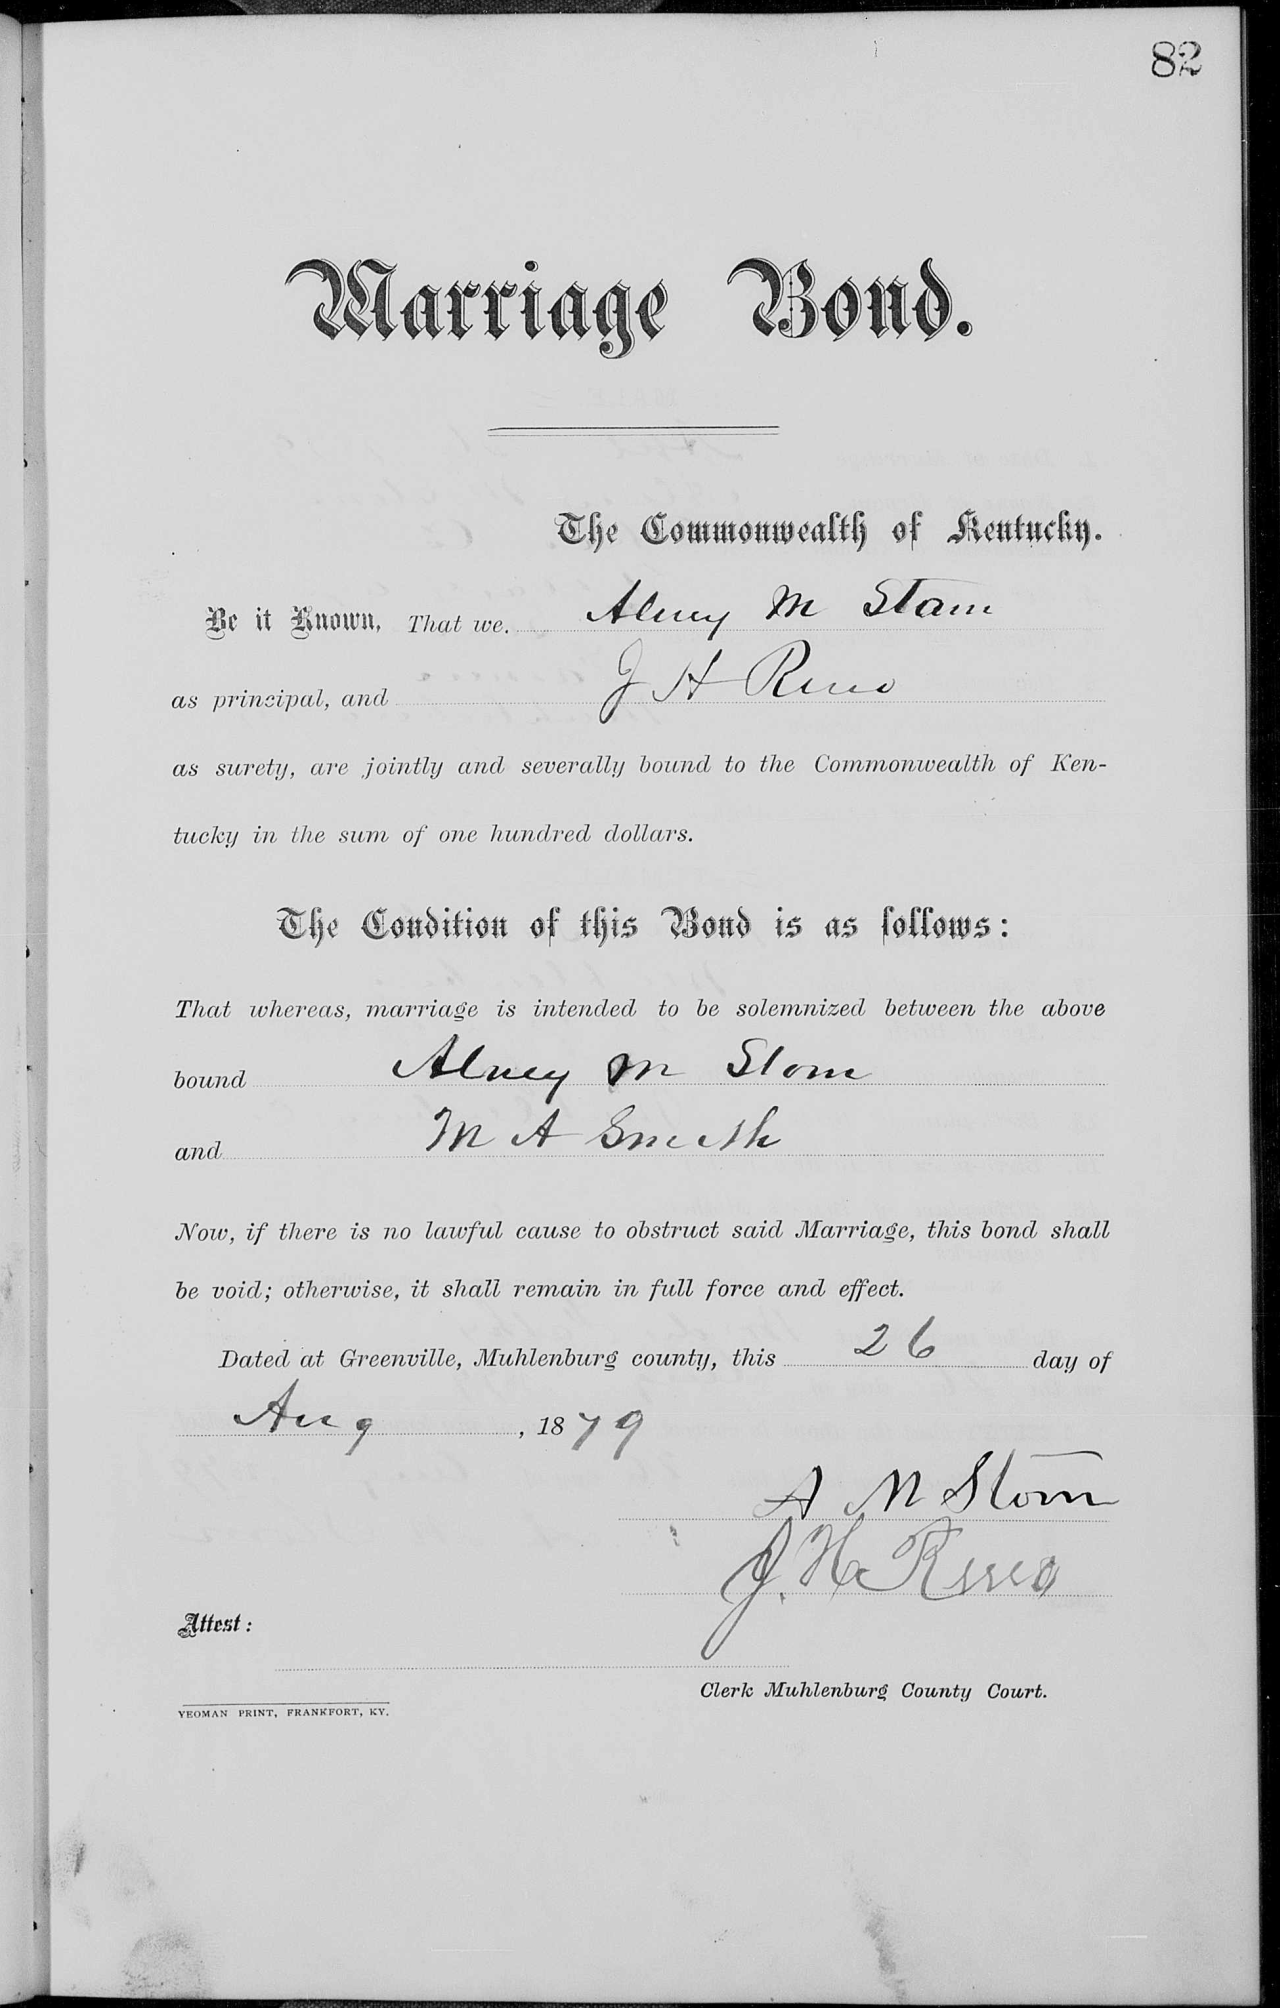 82
Marriage Bond.
The Commonwealth of Kentucky.
Be it Known, That we. Alney M Stom
as principal, and J H Reno
as surety, are jointly and severally bound to the Commonwealth of Ken-
tucky in the sum of one hundred dollars.
The Condition of this Bond is as follows:
That whereas, marriage is intended to be solemnized between the above
bound Alney M Stom
and M A Smith
Now, if there is no lawful cause to obstruct said Marriage, this bond shall
be void; otherwise, it shall remain in full force and effect.
Dated at Greenville, Muhlenburg county, this 26 day of
Aug, 1879
A M Stom
J. H. Reno
Attest:
Clerk Muhlenburg County Court.
YEOMAN PRINT, FRANKFORT, KY.